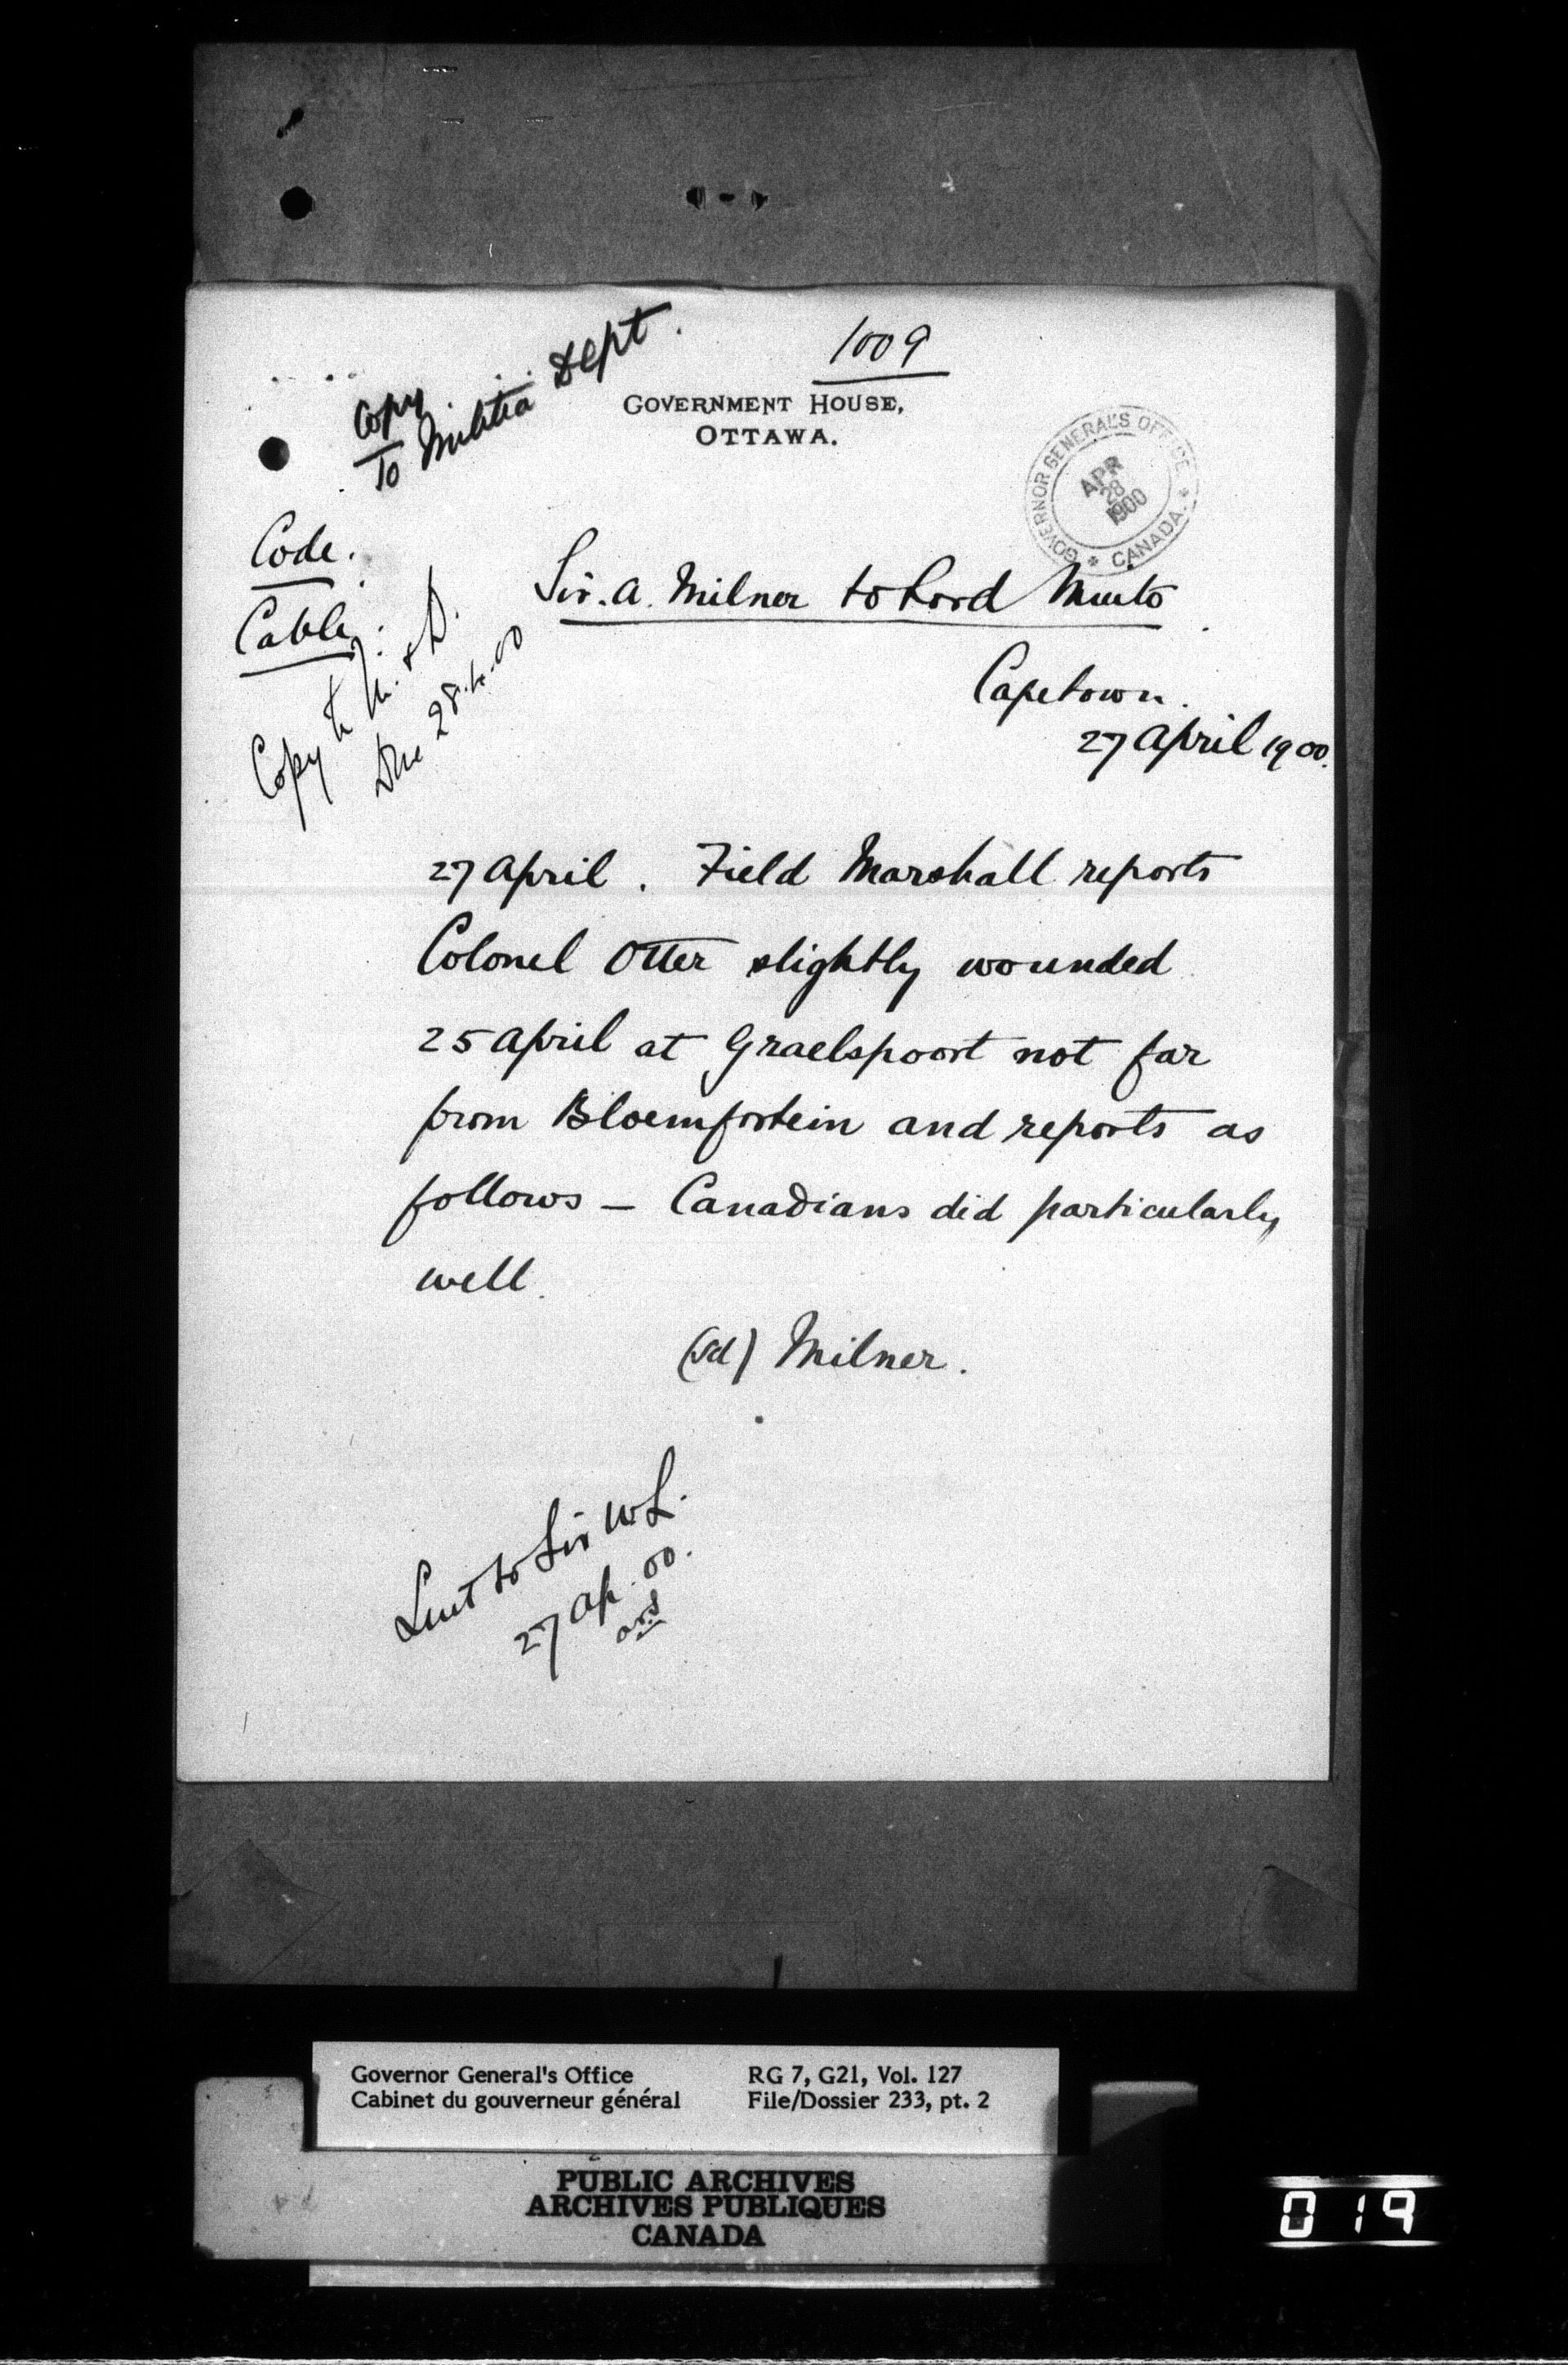 1009
Copy
To Militia Dept.
GOVERNMENT HOUSE,
OTTAWA.
GOVERNOR GENERAL'S OFFICE
* CANADA. *
APR
28
1900
Code.
Cable.
Copy to M. & D.
28.4.00
Sir. A. Milner to Lord Minto
Capetown.
27 April 1900.
27 April. Field Marshall reports
Colonel Otter slightly wounded
25 April at Graelspoort not far
from Bloemfortein and reports as
follows — Canadians did particularly
well.
(sd) Milner.
Sent to Sir W L.
27 Ap. 00.
Governor General's Office
Cabinet du gouverneur général
RG 7, G21, Vol. 127
File/Dossier 233, pt. 2
PUBLIC ARCHIVES
ARCHIVES PUBLIQUES
CANADA
019